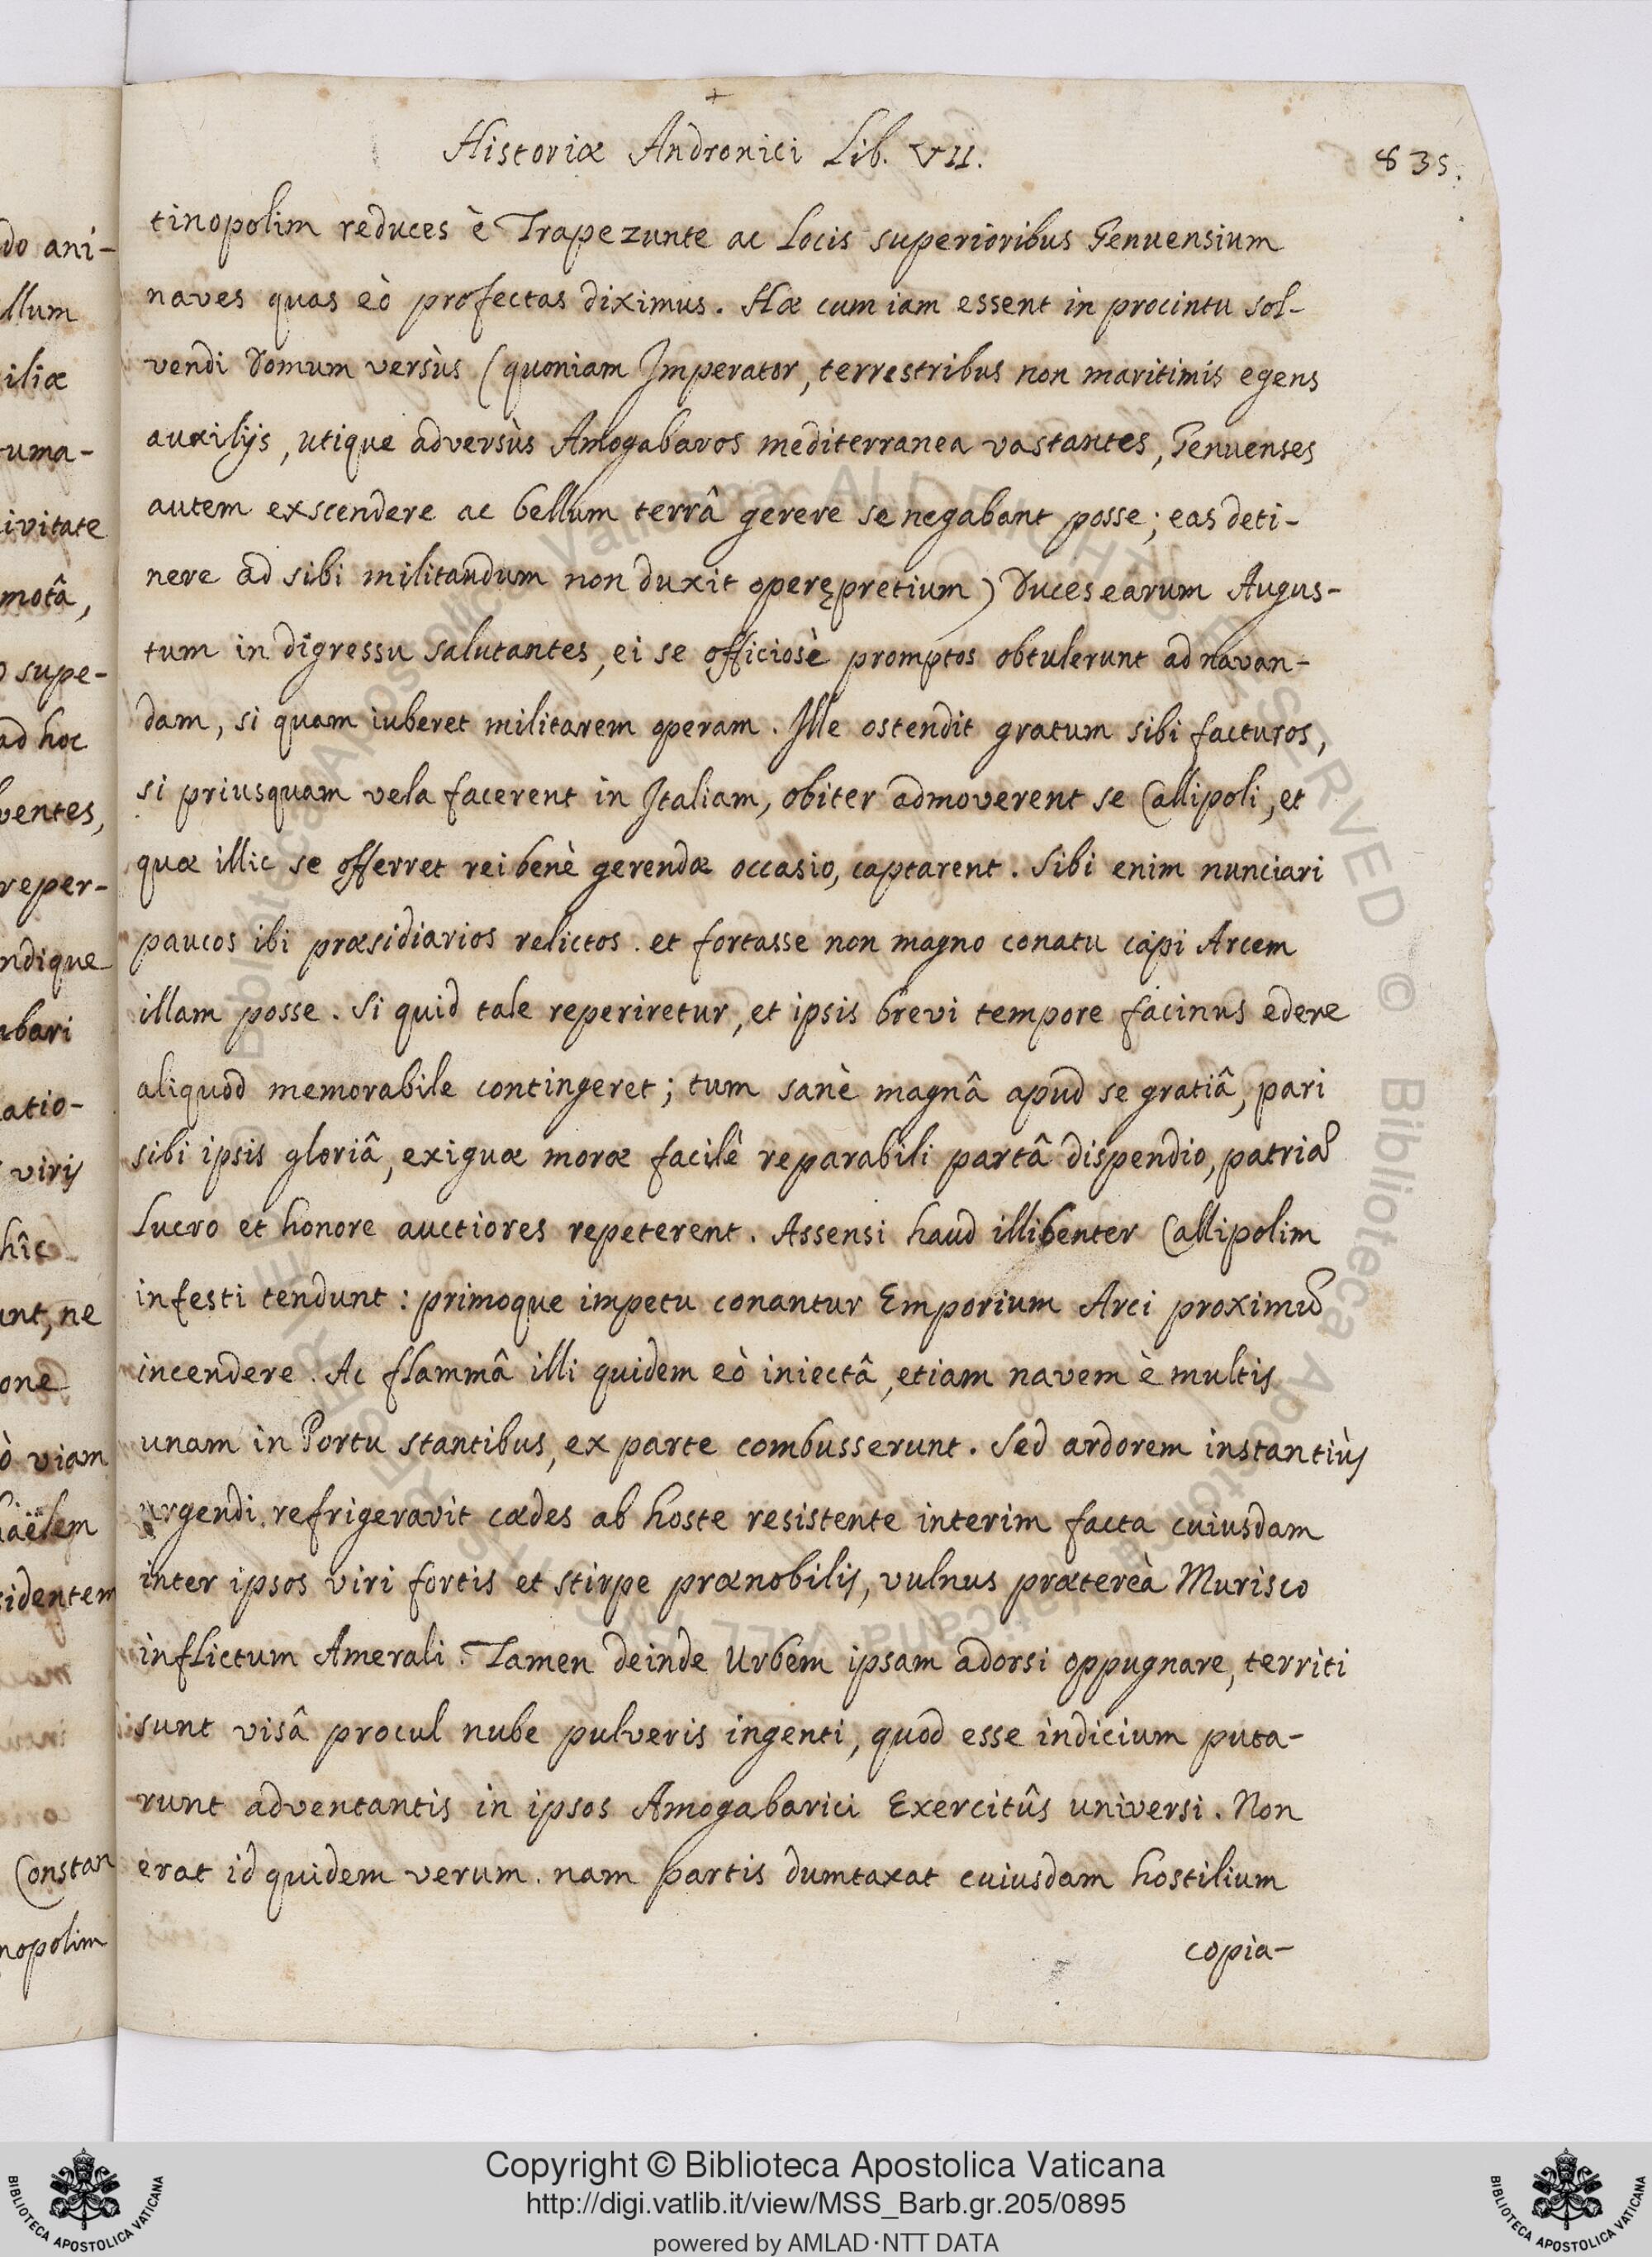 Historiæ Andronici Lib. VII.
835.
tinopolim reduces è Trapezunte ac Locis superioribus Genuensium
naves quas eò profectas diximus. Hæ cum iam essent in procintu sol-
vendi domum versùs (quoniam Imperator, terrestribus non maritimis egens
auxilijs, utique adversùs Amogabaros mediterranea vastantes, Genuenses
autem exscendere ac bellum terrâ gerere se negabant posse; eas deti-
nere ad sibi militandum non duxit operępretium) Duces earum Augus-
tum in digressu salutantes, ei se officiosè promptos obtulerunt ad navan-
dam, si quam iuberet militarem operam. Ille ostendit gratum sibi facturos,
si priusquam vela facerent in Italiam, obiter admoverent se Callipoli, et
quæ illic se offerret rei benè gerendæ occasio, captarent. Sibi enim nunciari
paucos ibi præsidiarios relictos. et fortasse non magno conatu capi Arcem
illam posse. Si quid tale reperiretur, et ipsis brevi tempore facinus edere
aliquod memorabile contingeret; tum sanè magnâ apud se gratiâ, pari
sibi ipsis gloriâ, exiguæ moræ facilè reparabili partâ dispendio, patriã
Lucro et honore auctiores repeterent. Assensi haud illibenter Callipolim
infesti tendunt: primoque impetu conantur Emporium Arci proximũ
incendere. Ac flammâ illi quidem eò iniectâ, etiam navem è multis
unam in Portu stantibus, ex parte combusserunt. Sed ardorem instantiùs
urgendi refrigeravit cædes ab hoste resistente interim facta cuiusdam
inter ipsos viri fortis et stirpe prænobilis, vulnus prætereà Murisco
inflictum Amerali. Tamen deinde Urbem ipsam adorsi oppugnare, territi
sunt visâ procul nube pulveris ingenti, quod esse indicium puta-
runt adventantis in ipsos Amogabarici Exercitûs universi. Non
erat id quidem verum. nam partis dumtaxat cuiusdam hostilium
copia-
do ani-
llum
iliæ
tuma-
ivitate
motâ,
supe-
ad hoc
ventes,
reper-
ndique
abari
atio-
viris
hîc
unt, ne
one
ò viam
haëlem
sidentem
Constan
nopolim
Copyright © Biblioteca Apostolica Vaticana
http://digi.vatlib.it/view/MSS_Barb.gr.205/0895
powered by AMLAD·NTT DATA
BIBLIOTECA APOSTOLICA VATICANA
BIBLIOTECA APOSTOLICA VATICANA